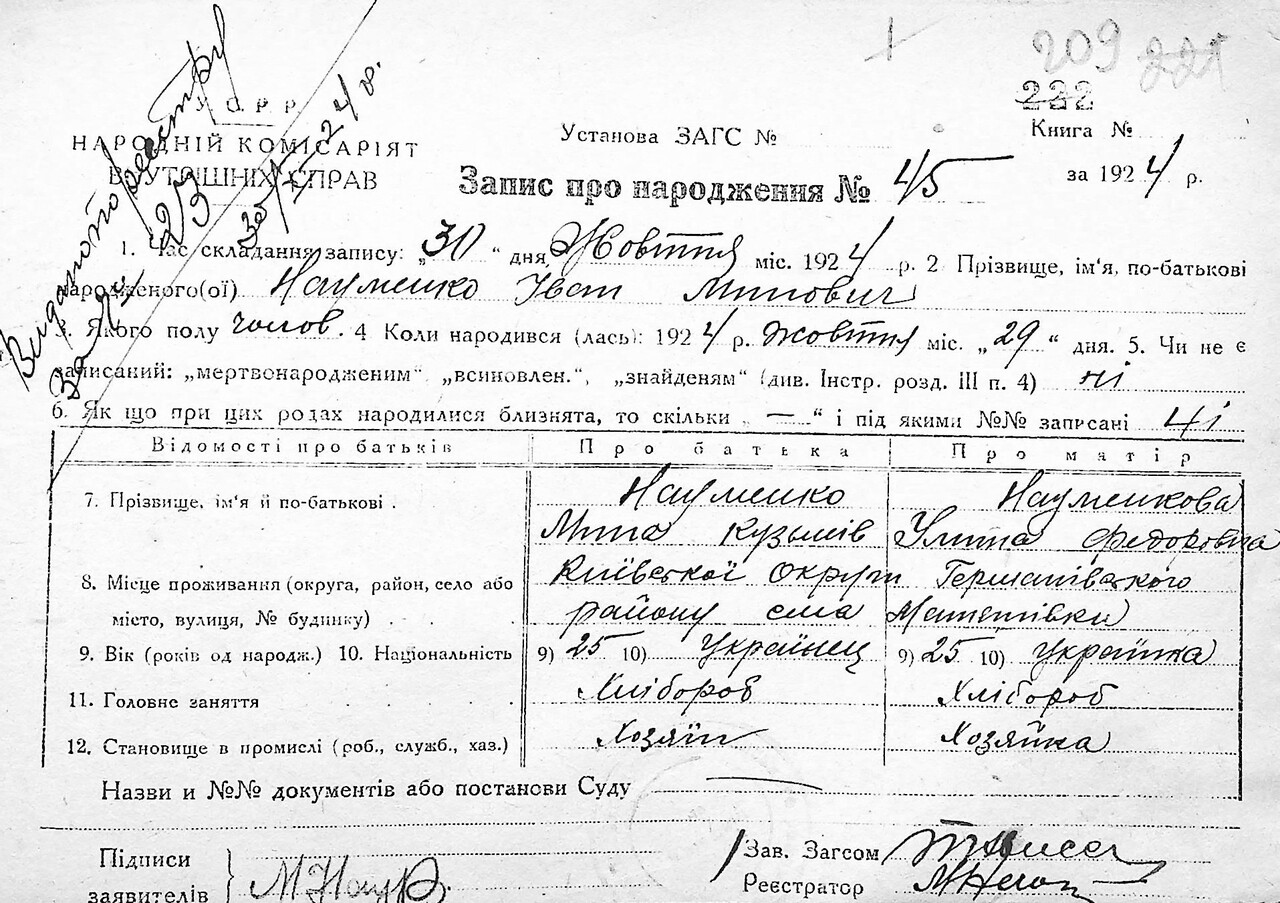 209 221
222
У. С. Р. Р.
НАРОДНІЙ КОМІСАРІЯТ
ВНУТРІШНІХ СПРАВ
Установа ЗАГС №
Книга №
Запис про народження № 45
за 1924 р.
Видано по реєстру
за № 23
24 р.
1. Час складання запису: „30" дня Жовтня міс. 1924 р. 2 Прізвище, ім'я, по-батькові
народженого(ої) Науменко Іван Минович
3. Якого полу чолов. 4 Коли народився (лась): 1924 р. жовтня міс. „29" дня. 5. Чи не є
записаний: „мертвонародженим", „всиновлен.", „знайденям" (див. Інстр. розд. III п. 4) ні
6. Як що при цих родах народилися близнята, то скільки „—" і під якими №№ записані
Відомості про батьків Про батька Про матір
7. Прізвище, ім'я й по-батькові . Науменко Науменкова
Мина Кузьмів Улита Федоровна
8. Місце проживання (округа, район, село або Київської Округи Германівського
місто, вулиця, № будинку) . . . району села
9. Вік (років од народж.) 10. Національність 9) 25 10) Українец 9) 25 10) Українка
11. Головне заняття Хлібороб Хлібороб
12. Становище в промислі (роб., служб., хаз.) Хозяїн Хозяйка
Назви и №№ документів або постанови Суду —
Підписи
заявителів
Зав. Загсом
Реєстратор